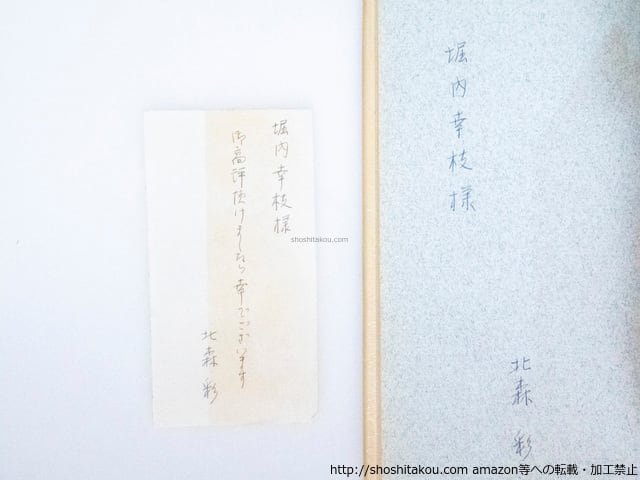 堀内幸枝様
御高評頂けましたら幸でございます
北森彩
堀内幸枝様
北森彩
shoshitakou.com
http://shoshitakou.com amazon等への転載・加工禁止